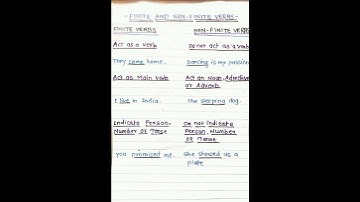 - FINITE AND NON-FINITE VERBS -
FINITE VERBS
NON-FINITE VERBS
Act as a verb
Do not act as a verb
They came home.
Dancing is my passion
Act as Main Verb
Act as Noun, Adjective or Adverb
I live in India.
The sleeping dog.
Indicate Person, Number or Tense
Do not Indicate Person, Number or Tense
you promised me.
She showed us a plate